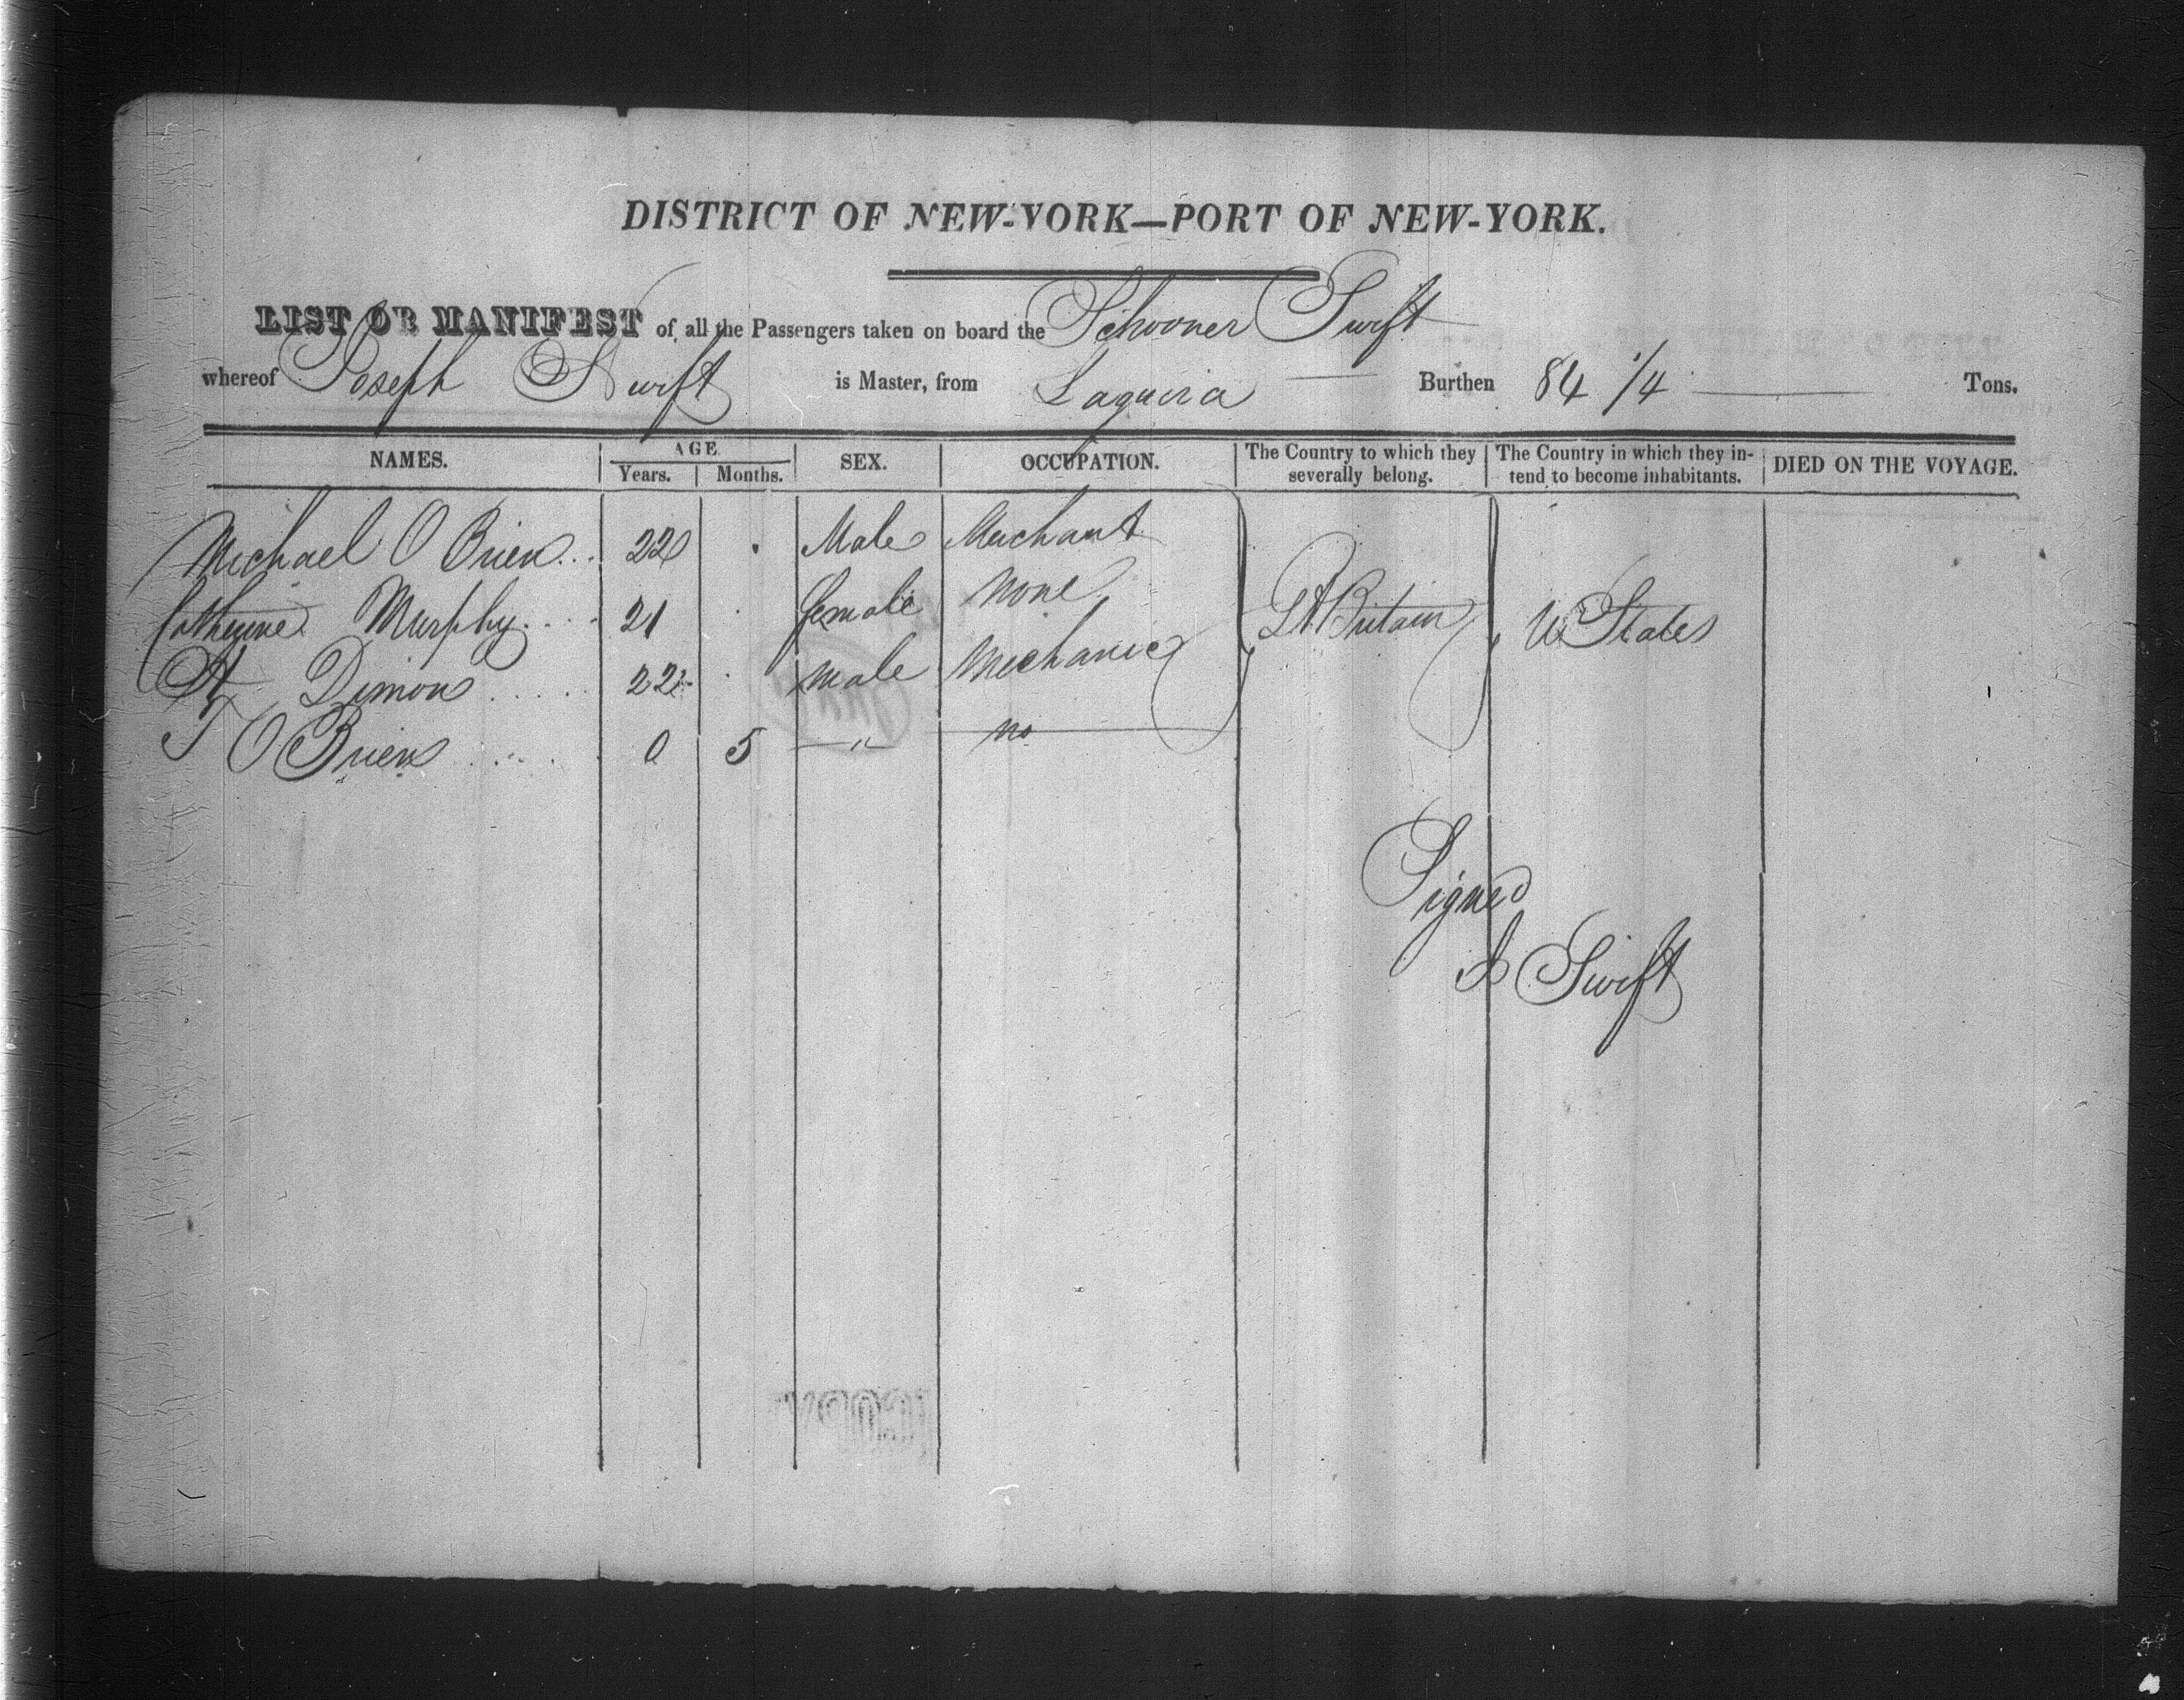 DISTRICT OF NEW-YORK—PORT OF NEW-YORK.
LIST OR MANIFEST of all the Passengers taken on board the Schooner Swift
whereof Joseph Swift is Master, from Laguira Burthen 84 1/4 Tons.
NAMES. AGE Years. Months. SEX. OCCUPATION. The Country to which they severally belong. The Country in which they intend to become inhabitants. DIED ON THE VOYAGE.
Michael O Brien 22 Male Merchant
Catherine Murphy 21 female None
Dimon 22 male Mechanic Gt Britain U States
O Brien 0 5 " no
Signed
J Swift